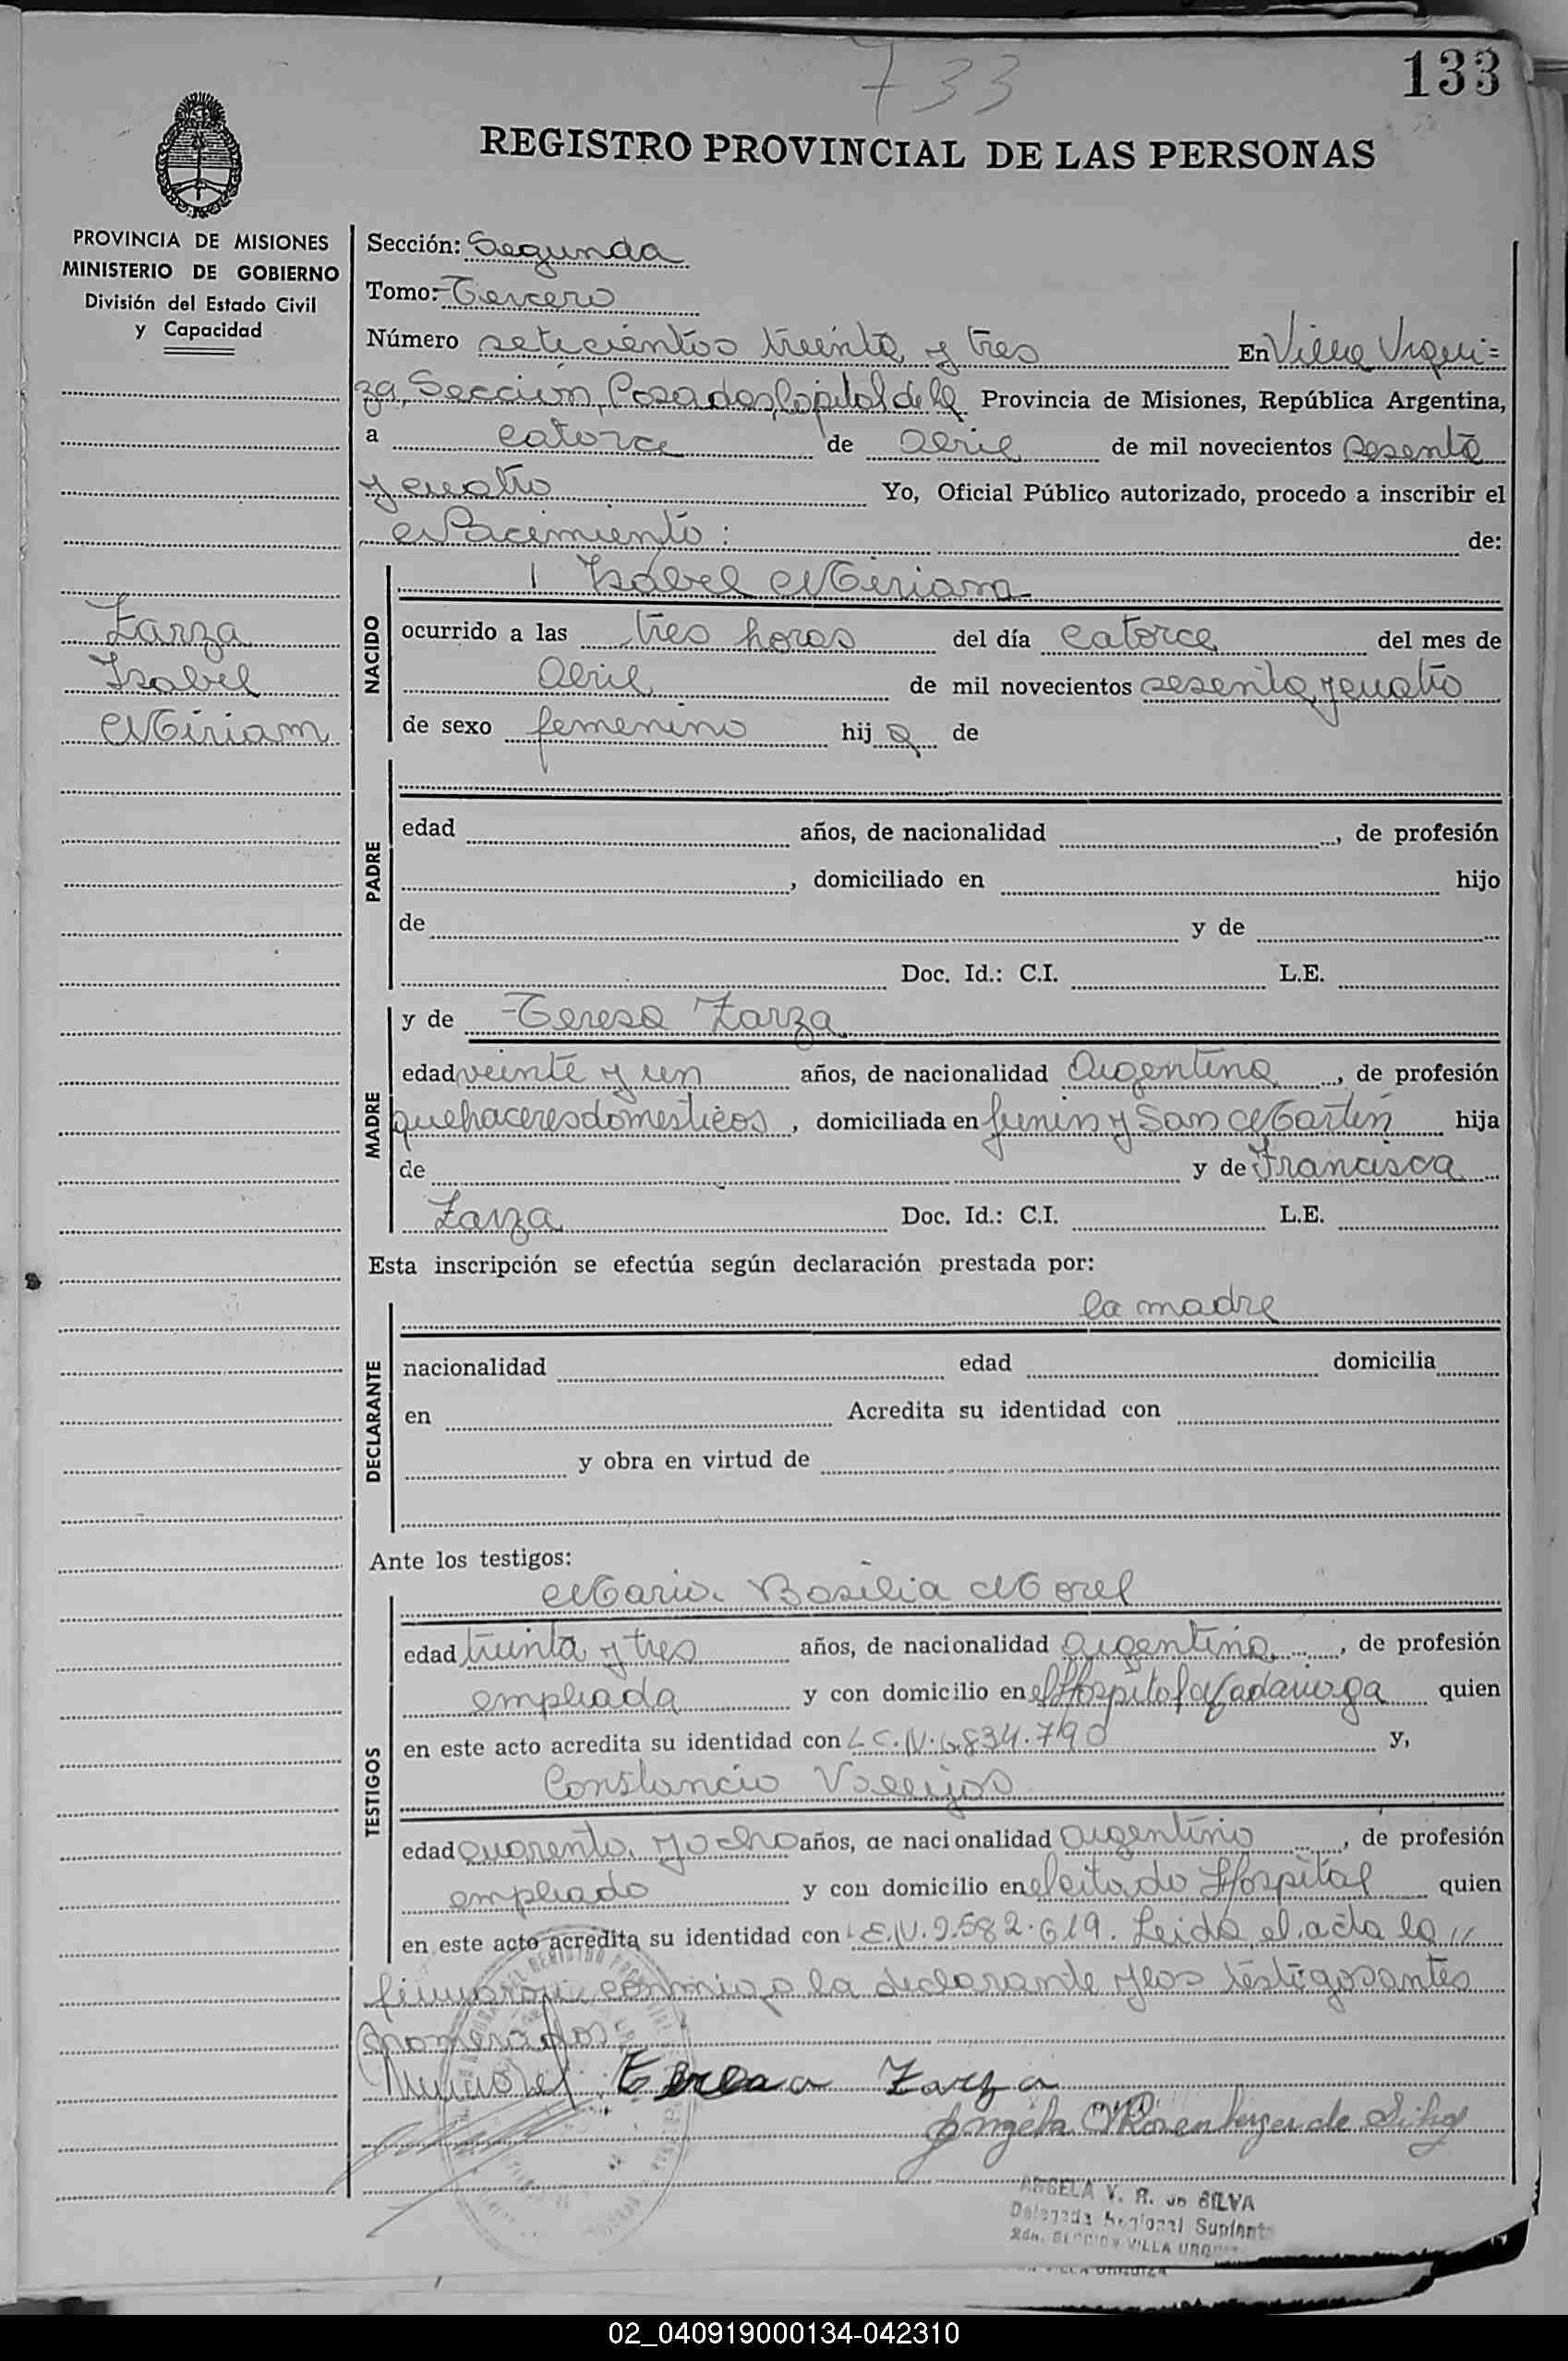 733
133
REGISTRO PROVINCIAL DE LAS PERSONAS
PROVINCIA DE MISIONES
MINISTERIO DE GOBIERNO
División del Estado Civil
y Capacidad
Zarza
Isabel
Miriam
Sección: Segunda
Tomo: Tercero
Número setecientos treinta y tres En Villa Urqui=
za, Sección, Posadas, Capital de la Provincia de Misiones, República Argentina,
a catorce de Abril de mil novecientos sesenta
y cuatro Yo, Oficial Público autorizado, procedo a inscribir el
Nacimiento: de:
NACIDO
Isabel Miriam
ocurrido a las tres horas del día catorce del mes de
Abril de mil novecientos sesenta y cuatro
de sexo femenino hij a de
PADRE
edad años, de nacionalidad , de profesión
, domiciliado en hijo
de y de
Doc. Id.: C.I. L.E.
MADRE
y de Teresa Zarza
edad veinte y un años, de nacionalidad Argentina , de profesión
quehaceres domesticos , domiciliada en Junin y San Martin hija
de y de Francisca
Zarza Doc. Id.: C.I. L.E.
Esta inscripción se efectúa según declaración prestada por:
la madre
DECLARANTE
nacionalidad edad domicilia
en Acredita su identidad con
y obra en virtud de
Ante los testigos:
TESTIGOS
Maria Basilia Morel
edad treinta y tres años, de nacionalidad argentina , de profesión
empleada y con domicilio en el Hospital Madariaga quien
en este acto acredita su identidad con L.C.N. 6.834.790 y,
Constancio Vallejos
edad cuarenta y ocho años, de nacionalidad argentino , de profesión
empleado y con domicilio en el citado Hospital quien
en este acto acredita su identidad con L.E.N. 2.582.619. Leida el acta la //
firmaron conmigo la declarante y los testigos antes
nomerados
Teresa Zarza
Angela V. Rosenberger de Silva
ANGELA V. R. de SILVA
Delegada Regional Suplente
2da. SECCION VILLA URQUIZA
VILLA URQUIZA
02_040919000134-042310